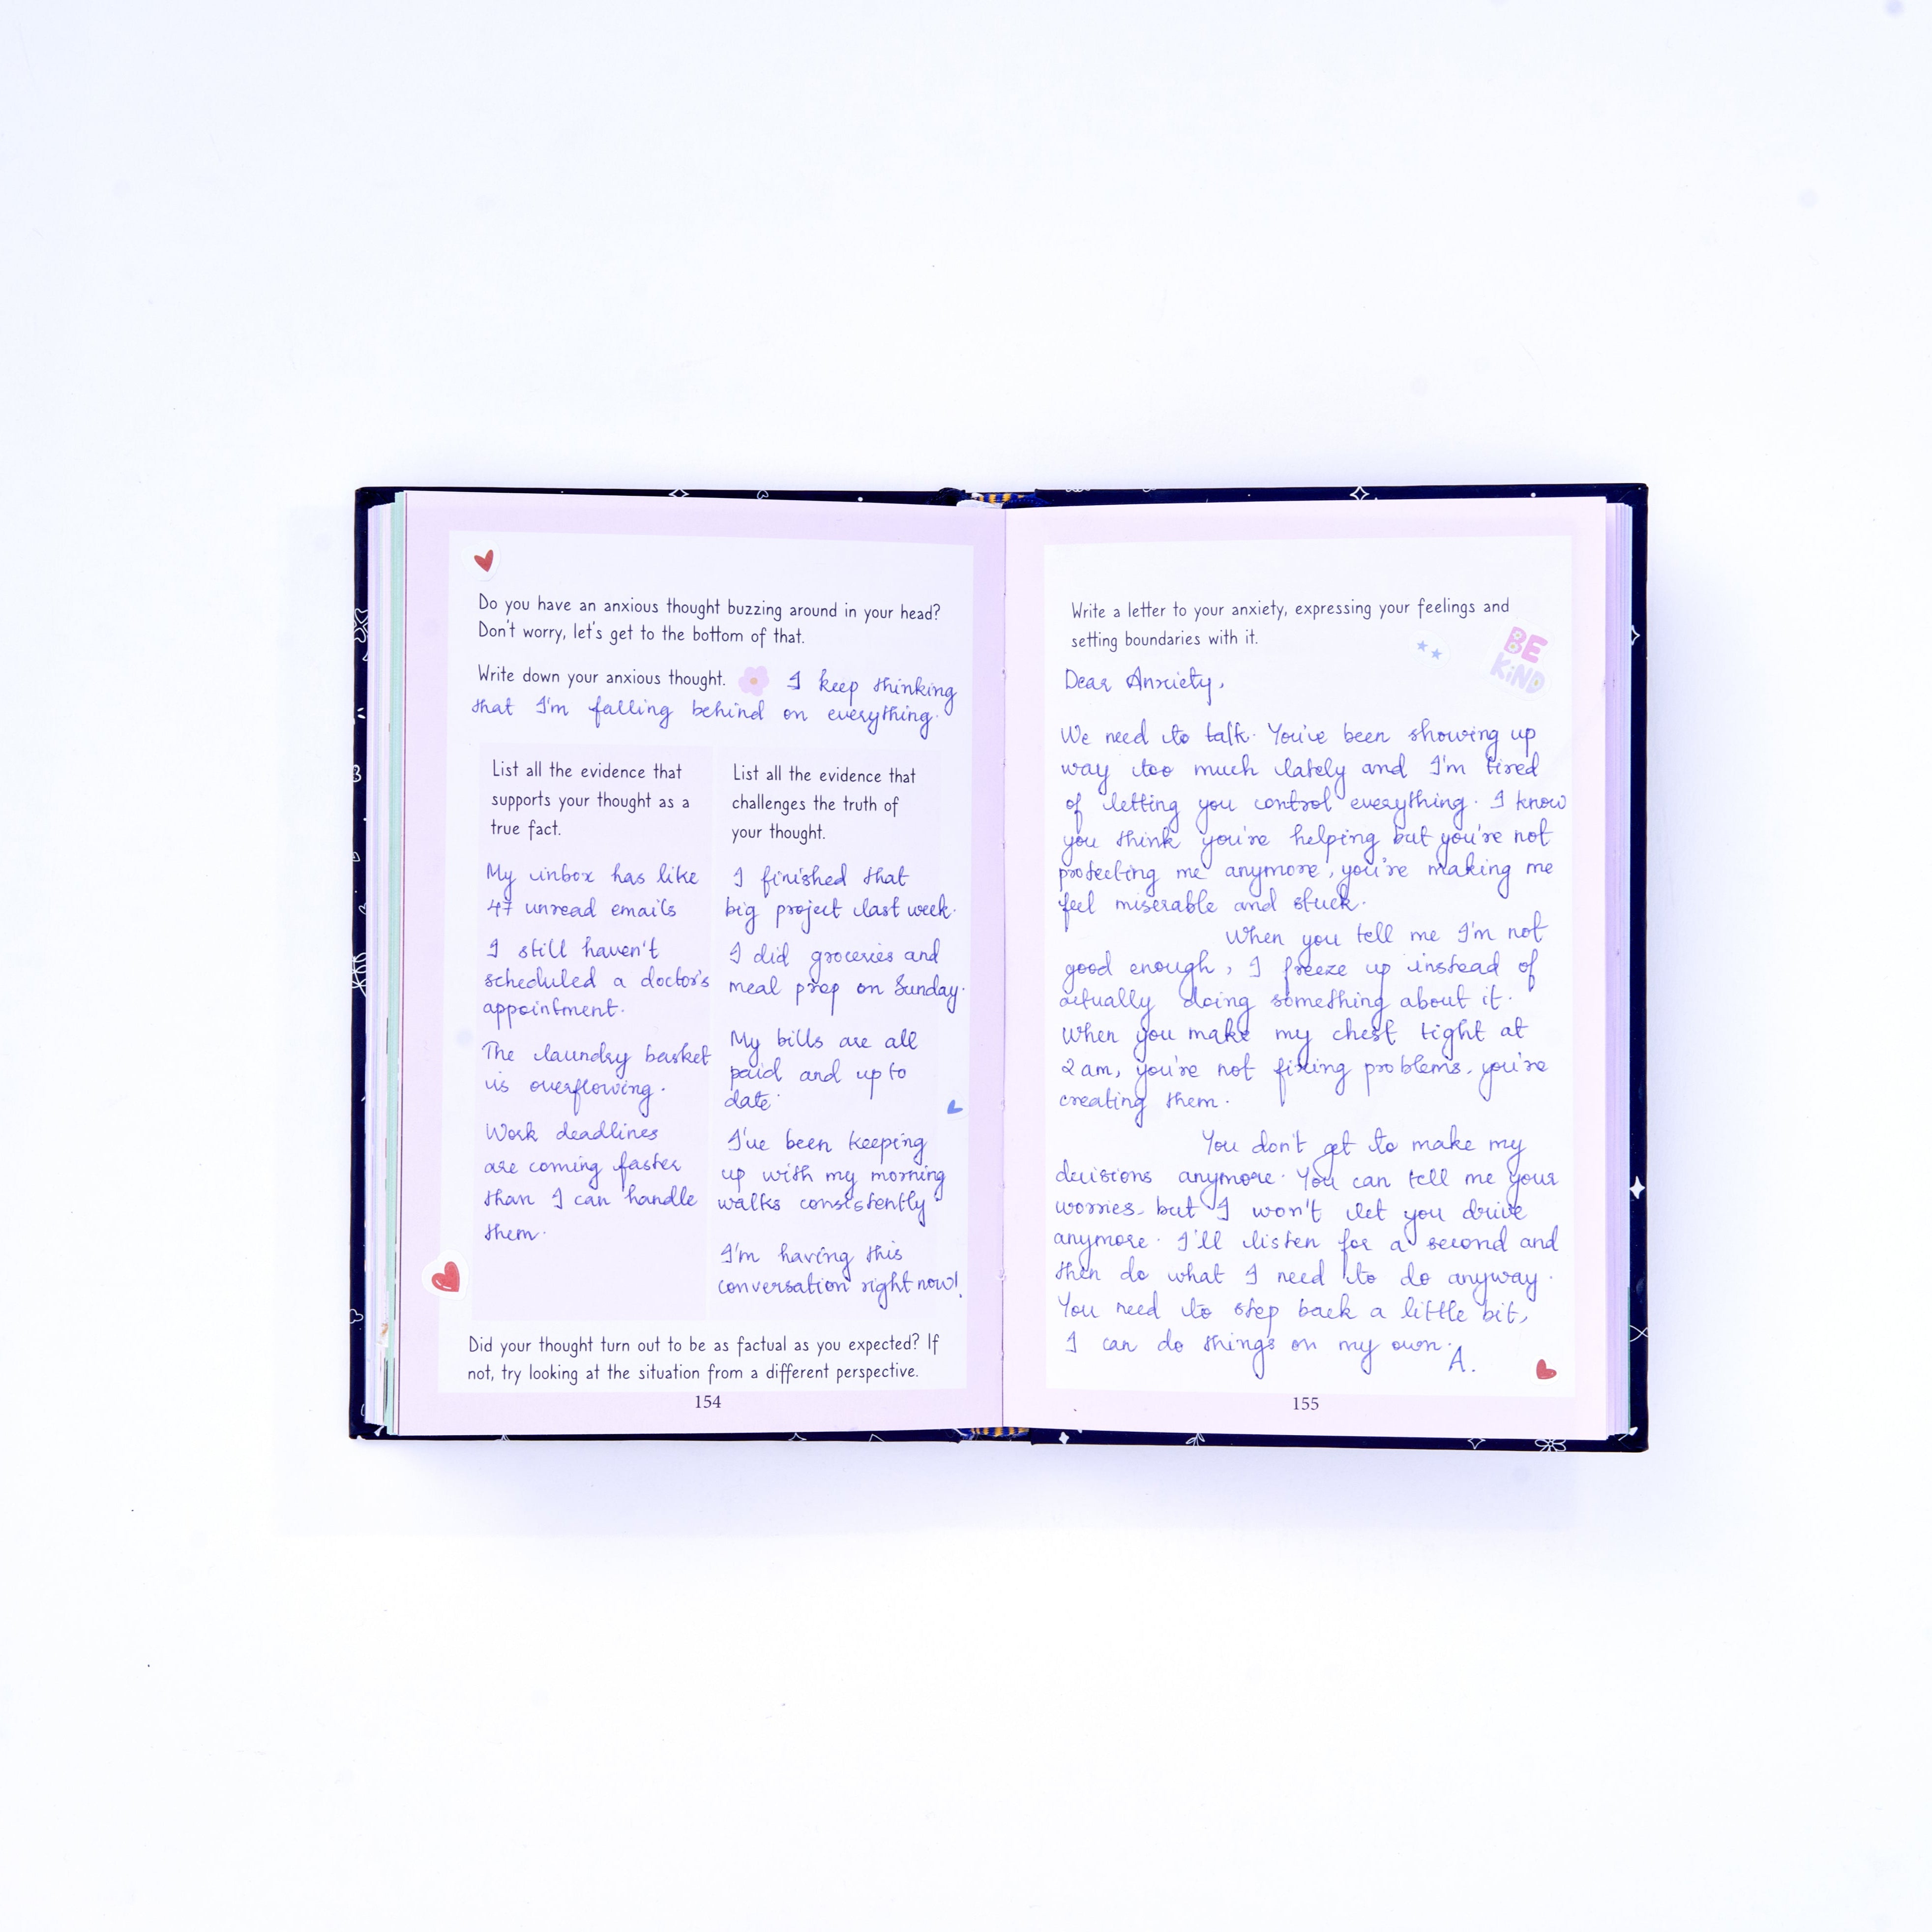 Do you have an anxious thought buzzing around in your head?
Don't worry, let's get to the bottom of that.
Write down your anxious thought. I keep thinking
that I'm falling behind on everything.
List all the evidence that
supports your thought as a
true fact.
My inbox has like
47 unread emails
I still haven't
scheduled a doctor's
appointment.
The laundry basket
is overflowing.
Work deadlines
are coming faster
than I can handle
them.
List all the evidence that
challenges the truth of
your thought.
I finished that
big project last week.
I did groceries and
meal prep on Sunday.
My bills are all
paid and up to
date.
I've been keeping
up with my morning
walks consistently
I'm having this
conversation right now!
Did your thought turn out to be as factual as you expected? If
not, try looking at the situation from a different perspective.
154
Write a letter to your anxiety, expressing your feelings and
setting boundaries with it.
BE
KiND
Dear Anxiety,
We need to talk. You've been showing up
way too much lately and I'm tired
of letting you control everything. I know
you think you're helping but you're not
protecting me anymore, you're making me
feel miserable and stuck.
When you tell me I'm not
good enough, I freeze up instead of
actually doing something about it.
When you make my chest tight at
2 am, you're not fixing problems, you're
creating them.
You don't get to make my
decisions anymore. You can tell me your
worries, but I won't let you drive
anymore. I'll listen for a second and
then do what I need to do anyway.
You need to step back a little bit,
I can do things on my own.
A.
155